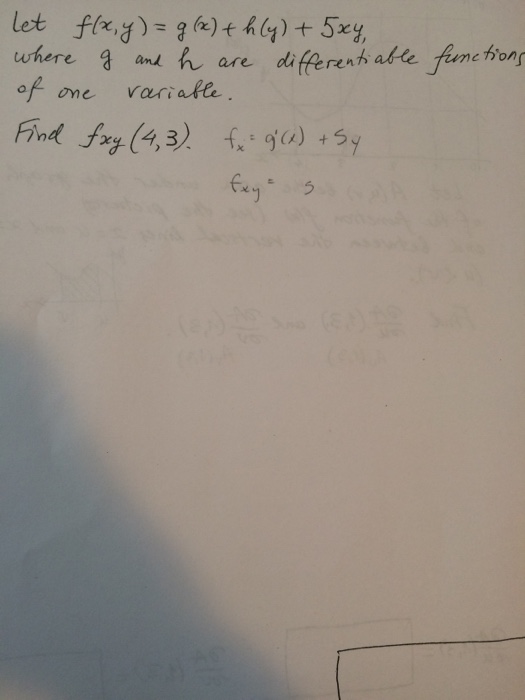 Let f(x,y) = g(x) + h(y) + 5xy,
where g and h are differentiable functions
of one variable.
Find fxy (4,3). fx = g'(x) + 5y
fxy = 5